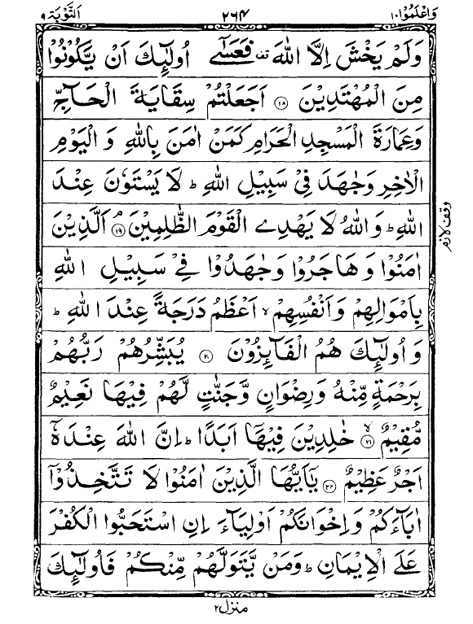 وَاعْلَمُوْا ١٠ ٢٦٤ التَّوْبَة ٩
وَلَمْ يَخْشَ اِلَّا اللّٰهَ فَعَسٰٓى اُولٰٓئِكَ اَنْ يَّكُوْنُوْا
مِنَ الْمُهْتَدِيْنَ ۝١٨ اَجَعَلْتُمْ سِقَايَةَ الْحَآجِّ
وَعِمَارَةَ الْمَسْجِدِ الْحَرَامِ كَمَنْ اٰمَنَ بِاللّٰهِ وَ الْيَوْمِ
الْاٰخِرِ وَجٰهَدَ فِيْ سَبِيْلِ اللّٰهِ ؕ لَا يَسْتَوٗنَ عِنْدَ
اللّٰهِ ؕ وَاللّٰهُ لَا يَهْدِى الْقَوْمَ الظّٰلِمِيْنَ ۝١٩ اَلَّذِيْنَ
اٰمَنُوْا وَهَاجَرُوْا وَجٰهَدُوْا فِيْ سَبِيْلِ اللّٰهِ
بِاَمْوَالِهِمْ وَاَنْفُسِهِمْ ۙ اَعْظَمُ دَرَجَةً عِنْدَ اللّٰهِ ؕ
وَاُولٰٓئِكَ هُمُ الْفَآئِزُوْنَ ۝٢٠ يُبَشِّرُهُمْ رَبُّهُمْ
بِرَحْمَةٍ مِّنْهُ وَرِضْوَانٍ وَّجَنّٰتٍ لَّهُمْ فِيْهَا نَعِيْمٌ
مُّقِيْمٌ ۝٢١ۙ خٰلِدِيْنَ فِيْهَآ اَبَدًا ؕ اِنَّ اللّٰهَ عِنْدَهٗٓ
اَجْرٌ عَظِيْمٌ ۝٢٢ يٰٓاَيُّهَا الَّذِيْنَ اٰمَنُوْا لَا تَتَّخِذُوْٓا
اٰبَآءَكُمْ وَاِخْوَانَكُمْ اَوْلِيَآءَ اِنِ اسْتَحَبُّوا الْكُفْرَ
عَلَى الْاِيْمَانِ ؕ وَمَنْ يَّتَوَلَّهُمْ مِّنْكُمْ فَاُولٰٓئِكَ
وقف لازم
منزل ٢